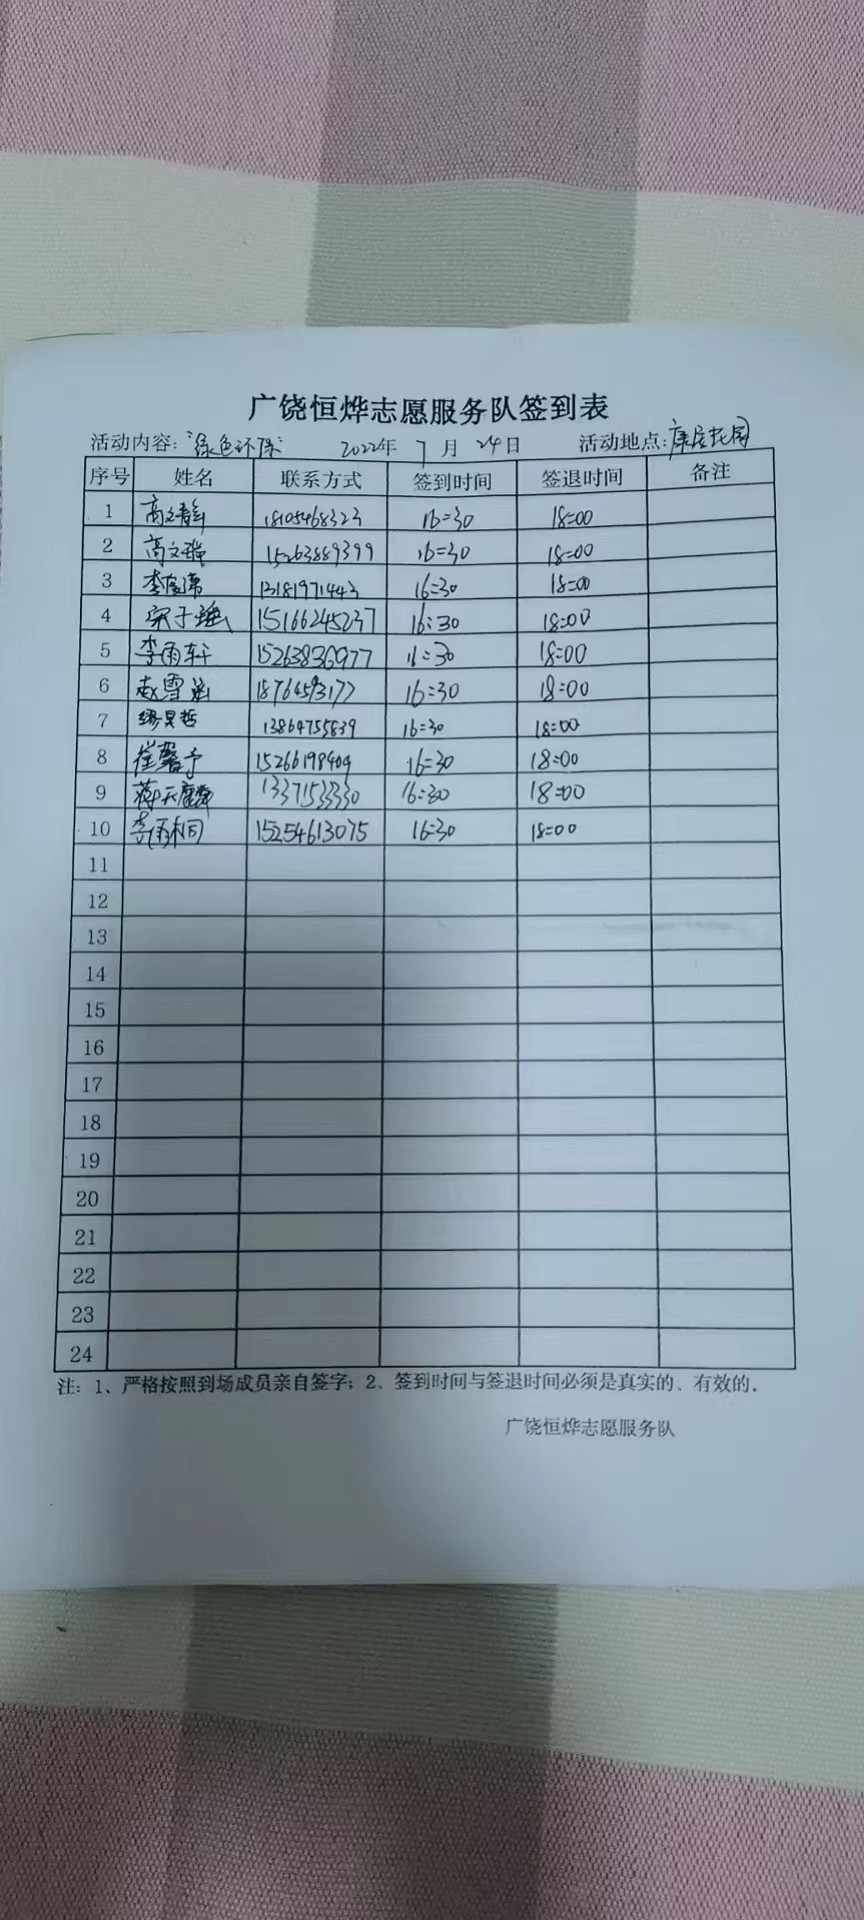 广饶恒烨志愿服务队签到表
活动内容:"绿色环保" 2022年 7月 24日 活动地点:康居花园
序号 姓名 联系方式 签到时间 签退时间 备注
1 高文靜 18105468323 16:30 18:00
2 高文瑞 15263889399 16:30 18:00
3 13181971443 16:30 18:00
4 宋子涵 15166245237 16:30 18:00
5 李雨轩 15263836977 16:30 18:00
6 赵雪涵 18764593177 16:30 18:00
7 13864755839 16:30 18:00
8 崔馨予 15266198409 16:30 18:00
9 蒋天麟 1337153330 16:30 18:00
10 李雨桐 15254613075 16:30 18:00
11
12
13
14
15
16
17
18
19
20
21
22
23
24
注:1、严格按照到场成员亲自签字;2、签到时间与签退时间必须是真实的、有效的.
广饶恒烨志愿服务队